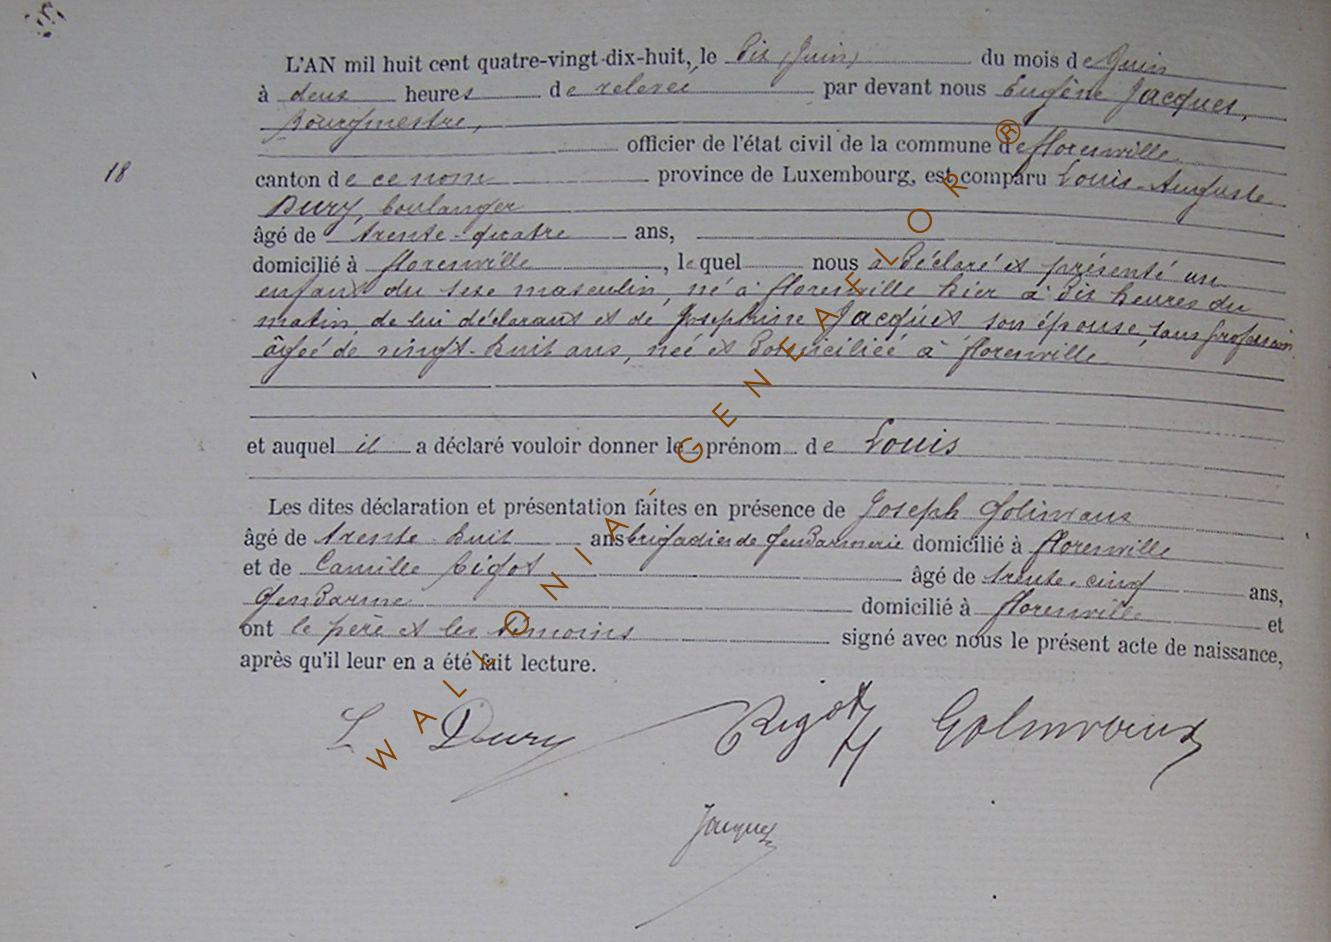 L'AN mil huit cent quatre-vingt-dix-huit, le dix Juin du mois de Juin
à deux heures de relevée par devant nous Eugène Jacques,
Bourgmestre,
officier de l'état civil de la commune de florenville
18
canton de ce nom province de Luxembourg, est comparu Louis-Auguste
Dury, boulanger
âgé de trente-quatre ans,
domicilié à florenville, lequel nous a déclaré et présenté un
enfant du sexe masculin, né à florenville hier à dix heures du
matin, de lui déclarant et de Joséphine Jacques son épouse, sans profession
âgée de vingt-huit ans, née et domiciliée à florenville
et auquel il a déclaré vouloir donner le prénom de Louis
Les dites déclaration et présentation faites en présence de Joseph Golinvaux
âgé de trente-huit ans brigadier de gendarmerie domicilié à florenville
et de Camille Rigot âgé de trente-cinq ans,
gendarme domicilié à florenville et
ont le père et les témoins signé avec nous le présent acte de naissance,
après qu'il leur en a été fait lecture.
L Dury Rigot Golinvaux
Jacques
WALLONIA-GENEAFLOR ®